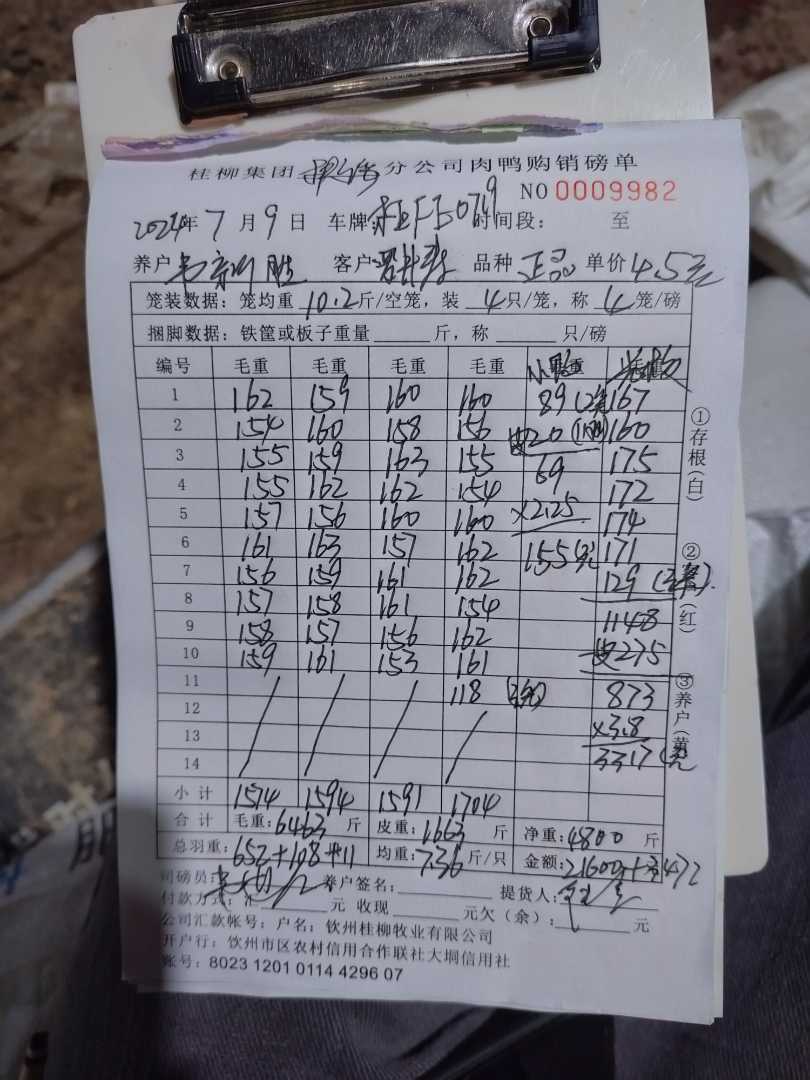 桂柳集团 分公司肉鸭购销磅单
NO 0009982
2024年 7 月 9 日 车牌: 桂FF5079 时间段: 至
养户 客户 品种 正品 单价 4.5元
笼装数据: 笼均重 10.2 斤/空笼, 装 4 只/笼, 称 4 笼/磅
捆脚数据: 铁筐或板子重量 斤, 称 只/磅
编号 毛重 毛重 毛重 毛重
1 162 159 160 160 89 167
2 154 160 158 156 20 160
3 155 159 163 155 69 175
4 155 162 162 154 172
5 157 156 160 160 ×2.25 174
6 161 163 157 162 155元 171
7 156 159 161 162 129
8 157 158 161 154 1148
9 158 157 156 162 皮275
10 159 161 153 161
11 118 873
12 ×3.8
13 3317元
14
小计 1574 1594 1591 1704
合计 毛重: 6463 斤 皮重: 1663 斤 净重: 4800 斤
总羽重: 652+108+11 均重: 7.36 斤/只 金额: 21600+3472
司磅员: 养户签名: 提货人:
付款方式: 汇 元 收现 元欠(余): 元
公司汇款帐号: 户名: 钦州桂柳牧业有限公司
开户行: 钦州市区农村信用合作联社大垌信用社
账号: 8023 1201 0114 4296 07
①存根(白)
② (红)
③养户(黄